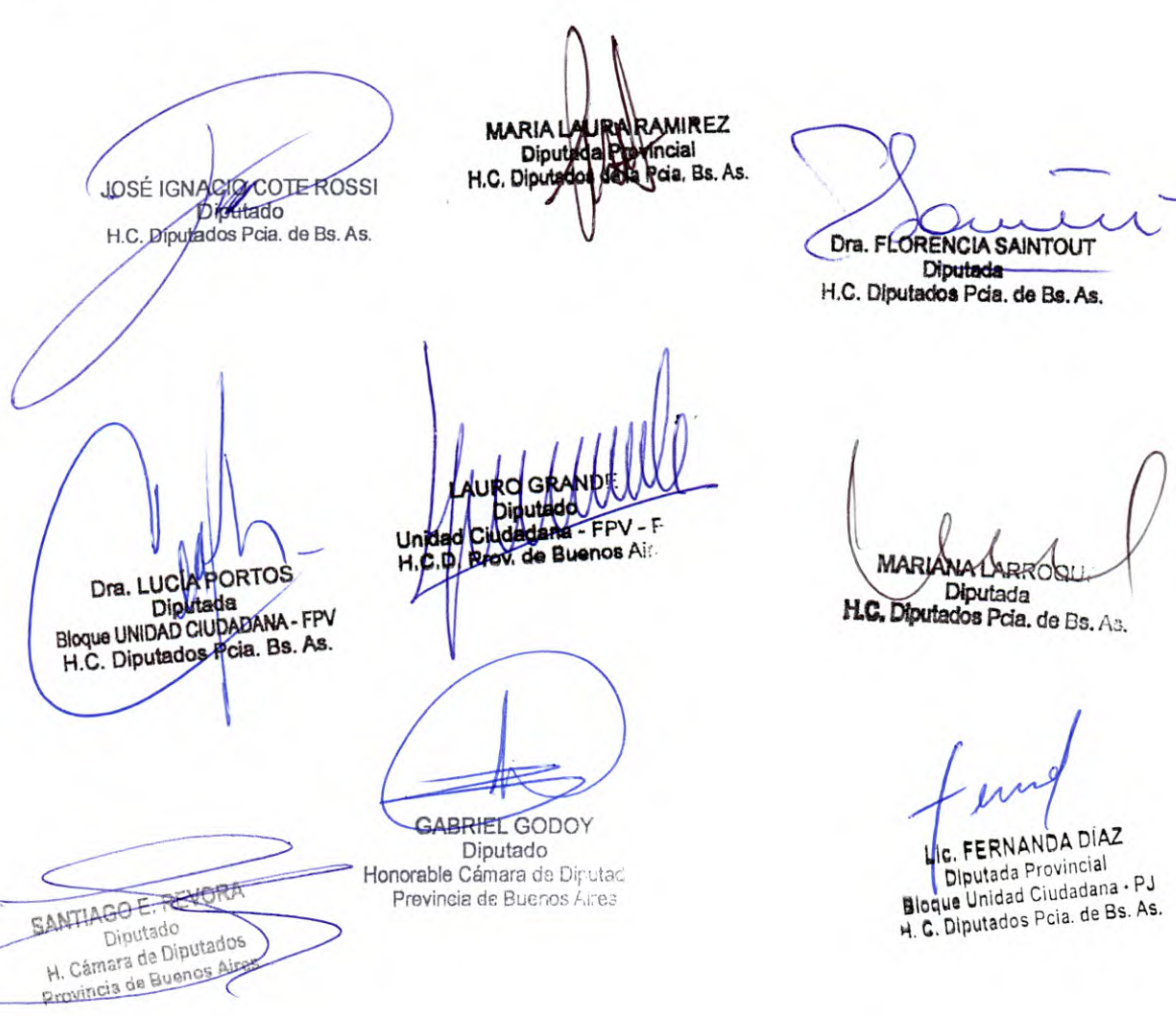 JOSÉ IGNACIO COTE ROSSI
Diputado
H.C. Diputados Pcia. de Bs. As.
MARIA LAURA RAMIREZ
Diputada Provincial
H.C. Diputados de la Pcia. Bs. As.
Dra. FLORENCIA SAINTOUT
Diputada
H.C. Diputados Pcia. de Bs. As.
Dra. LUCÍA PORTOS
Diputada
Bloque UNIDAD CIUDADANA - FPV
H.C. Diputados Pcia. Bs. As.
LAURO GRANDE
Diputado
Unidad Ciudadana - FPV - F
H.C.D. Prov. de Buenos Air
MARIANA LARROQU
Diputada
H.C. Diputados Pcia. de Bs. As.
GABRIEL GODOY
Diputado
Honorable Cámara de Diputad
Provincia de Buenos Aires
SANTIAGO E. REVORA
Diputado
H. Cámara de Diputados
Provincia de Buenos Aires
Lic. FERNANDA DÍAZ
Diputada Provincial
Bloque Unidad Ciudadana - PJ
H. C. Diputados Pcia. de Bs. As.